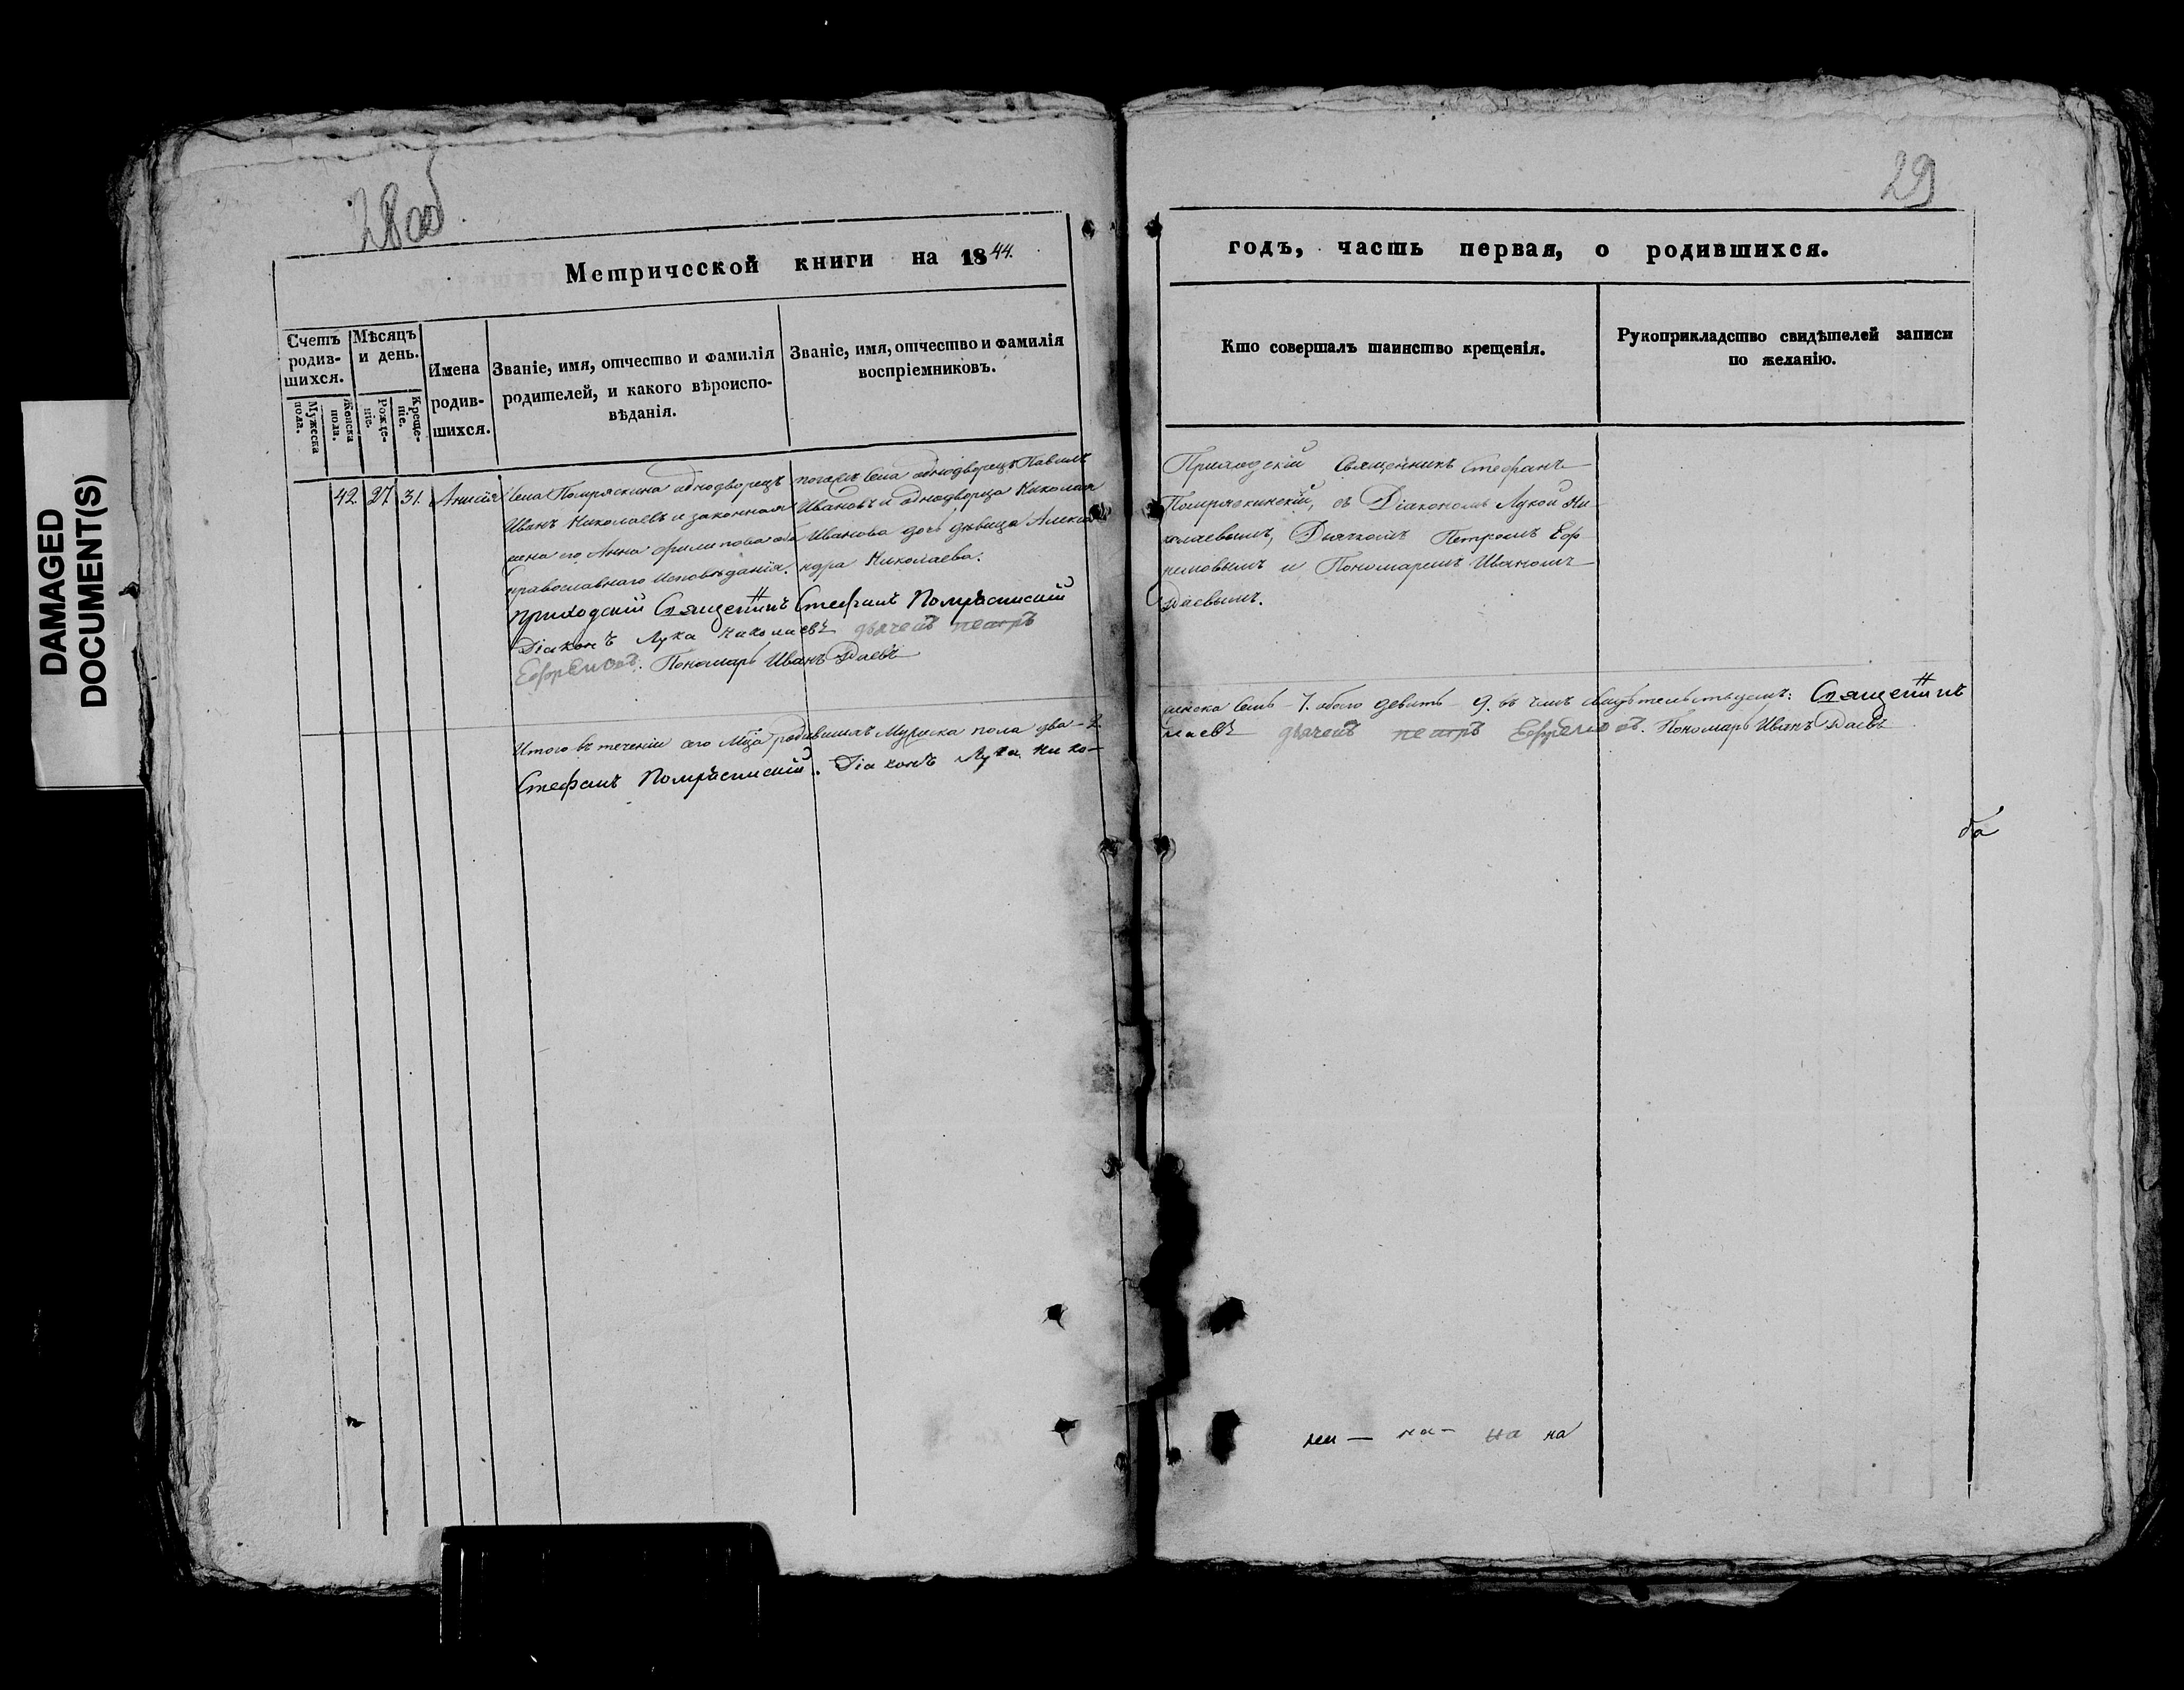 DAMAGED
DOCUMENT(S)
28об
29
Метрической книги на 1844.
годъ, часть первая, о родившихся.
Счетъ родив-шихся.
Мужеска пола.
Женска пола.
Мѣсяцъ и день.
Рожде-ніе.
Креще-ніе.
Имена родив-шихся.
Званіе, имя, отчество и фамилія
родителей, и какого вѣроиспо-
вѣданія.
Званіе, имя, отчество и фамилія
воспріемниковъ.
Кто совершалъ таинство крещенія.
Рукоприкладство свидѣтелей записи
по желанію.
42. 27. 31. Анисія
Села Помряскина однодворецъ
Иванъ Николаевъ и законная
жена его Анна Филипова оба
православнаго исповѣданія.
тогожъ села однодворецъ Павелъ
Ивановъ и однодворца Николая
Иванова дочь дѣвица Алекса
ндра Николаева.
Приходскій Священникъ Стефанъ
Помряскинскій, съ Діакономъ Лукой Ни
колаевымъ, Дьячкомъ Петромъ Еф
ремовымъ и Пономаремъ Иваномъ
Даевымъ.
приходскій Священникъ Стефанъ Помрѣскинскій
Діаконъ Лука Николаевъ дьячекъ петръ
Ефремовъ. Пономарь Иванъ Даевъ
Итого въ теченіи сего Мца родившихъ Мужеска пола два - 2
женска семь - 7. обоего девять - 9. въ чемъ свидѣтельствуемъ: Священникъ
Стефанъ Помрѣскинскій. Діаконъ Лука Нико-
лаевъ дьячекъ петръ Ефремовъ. Пономарь Иванъ Даевъ
ба
на на на